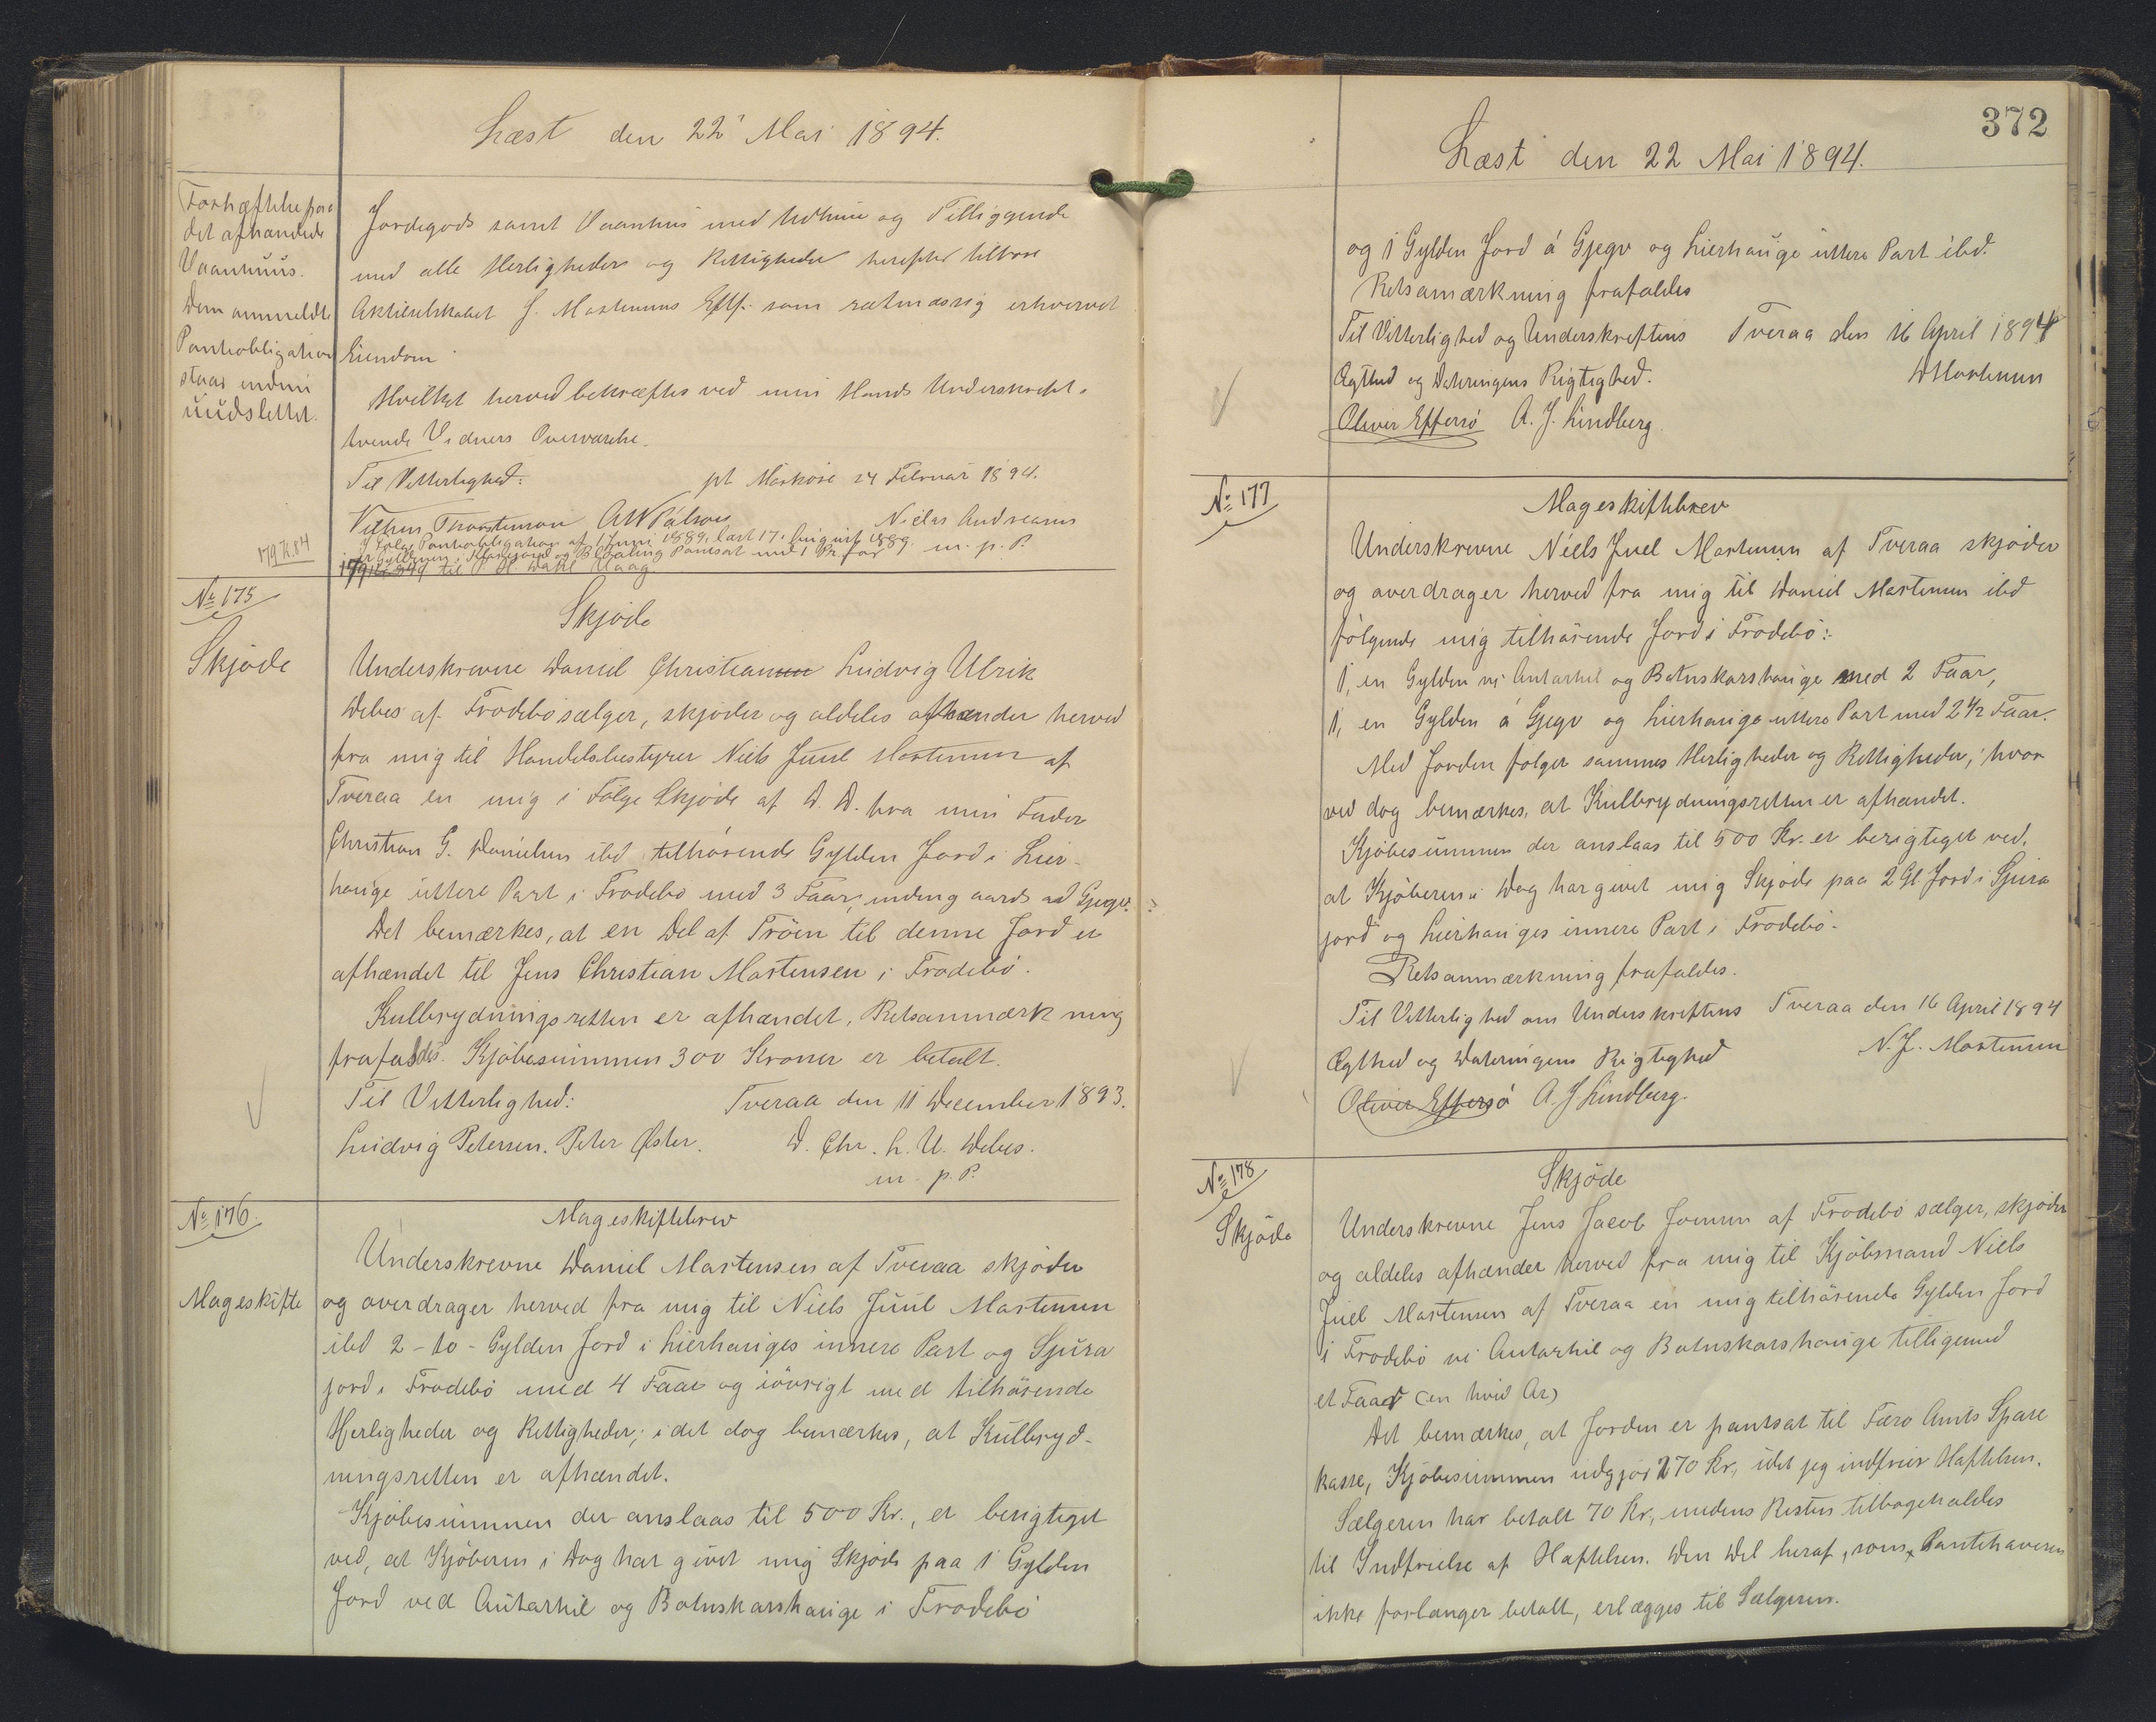 Læst den 22' Mai 1894.
Forhæftelse paa
det afhændede
Vaanhuus.
Den anmeldte
Pantobligation
staar endnu
uudslettet.
Jordegods samt Vaanhus med Udhuse og Tilliggende
med alle Herligheder og Rettigheder herefter tilhøre
Aktieselskabet J. Mortensens Eftf. som retmæssig erhvervet
Eiendom
Hvilket herved bekræftes ved min Haands Underskrift i
tvende Vidners Overværelse.
Til Vitterlighed: pt. 24 Februar 1894.
Thorsteinson Niclas Andreasen
m. p. P.
I Følge Pantobligation af 1 Juni 1889, læst 17. August 1889.
Pantsat med 1 Pr. for
179 K. 84 til Vaag
179 K. 84
No 175
Skjøde
Skjøde
Underskrevne Daniel Christian Ludvig Ulrik
Debes af Frodebö sælger, skjöder og aldeles afhænder herved
fra mig til Handelsbestyrer Niels Juul Mortensen af
Tveraa en mig i Følge Skjöde af D. D. fra min Fader
Christian G. Danielsen ibd. tilhörende Gylden Jord i Lier-
hauge uttere Part i Frodebö med 3 Faar, undtag aards ad Gjegv.
Det bemærkes, at en Del af Tröen til denne Jord er
afhændet til Jens Christian Mortensen i Frodebö.
Kulbrydningsretten er afhændet, Retsanmærkning
frafaldes. Kjöbesummen 300 Kroner er betalt.
Til Vitterlighed: Tveraa den 11 December 1893.
Ludvig Petersen. Peter Øster. D. Chr. L. U. Debes.
m. p. P.
No 176.
Mageskifte
Mageskiftebrev
Underskrevne Daniel Mortensen af Tveraa skjöder
og overdrager herved fra mig til Niels Juul Mortensen
ibd 2 - to - Gylden Jord i Lierhauges innere Part og Sjura
jord i Frodebö med 4 Faar og iövrigt med tilhörende
Herligheder og Rettigheder; idet dog bemærkes, at Kulbryd-
ningsretten er afhændet.
Kjöbesummen der anslaas til 500 Kr., er berigtiget
ved, at Kjöberen i Dag har givet mig Skjöde paa 1 Gylden
Jord ved Autarhil og Botnskarshauge i Frodebö
372
Læst den 22 Mai 1894.
og 1 Gylden Jord á Gjegv og Lierhauge uttere Part ibd.
Retsanmærkning frafaldes
Til Vitterlighed og Underskriftens Tveraa den 16 April 1894
Ægthed og Dateringens Rigtighed. D Mortensen
Oliver Effersö A. J. Lindberg.
No 177
Mageskiftebrev
Underskrevne Niels Juel Mortensen af Tveraa skjöder
og overdrager herved fra mig til Daniel Mortensen ibd
fölgende mig tilhörende Jord i Frodebö:
1, en Gylden vi Autarhil og Botnskarshauge med 2 Faar,
1, en Gylden á Gjegv og Lierhauge uttere Part med 2 1/2 Faar.
Med Jorden fölger sammes Herligheder og Rettigheder; hvor
ved dog bemærkes, at Kulbrydningsretten er afhændet.
Kjöbesummen der anslaas til 500 Kr. er berigtiget ved,
at Kjöberen i Dag har givet mig Skjöde paa 2 Gl. Jord i Sjura
jord og Lierhauges innere Part i Frodebö.
Retsanmærkning frafaldes.
Til Vitterlighed om Underskriftens Tveraa den 16 April 1894
Ægthed og Dateringens Rigtighed N. J. Mortensen
Oliver Effersö A. J Lindberg.
No 178
Skjöde
Skjöde
Underskrevne Jens Jacob Joensen af Frodebö sælger, skjöder
og aldeles afhænder herved fra mig til Kjöbmand Niels
Juel Mortensen af Tveraa en mig tilhörende Gylden Jord
i Frodebö vi Autarhil og Botnskarshauge tilligemed
et Faar (en hvid Ar)
Det bemærkes, at Jorden er pantsat til Færø Amts Spare
kasse, Kjöbesummen udgjör 270 Kr., idet jeg indfrier Hæftelsen.
Sælgeren har betalt 70 Kr., medens Resten tilbageholdes
til Indfrielse af Hæftelsen. Den Del heraf, som Pantehaveren
ikke forlanger betalt, erlægges til Sælgeren.